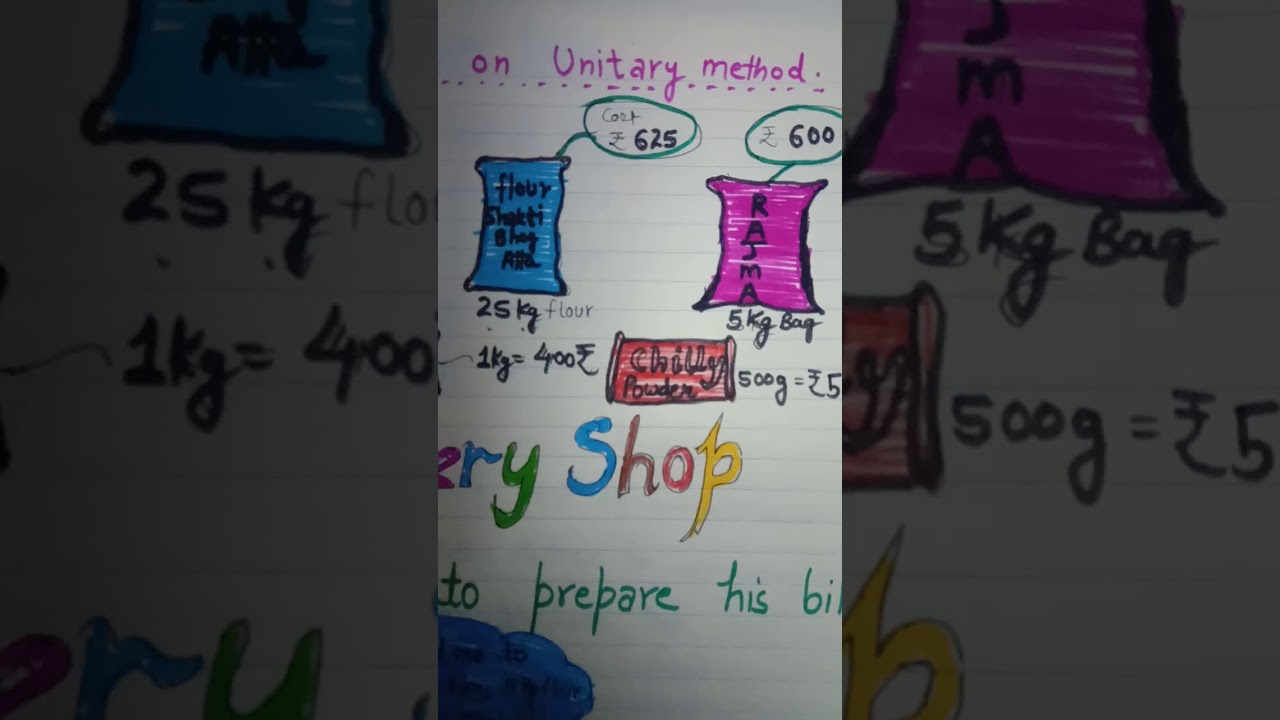 on Unitary method.
Cost
₹ 625
₹ 600
flour
Shakti
Bhog
Atta
RAJMA
25 kg flour
5 Kg Bag
1kg = 400₹
Chilly
Powder
500g = ₹5
ery Shop
to prepare his bil
me to